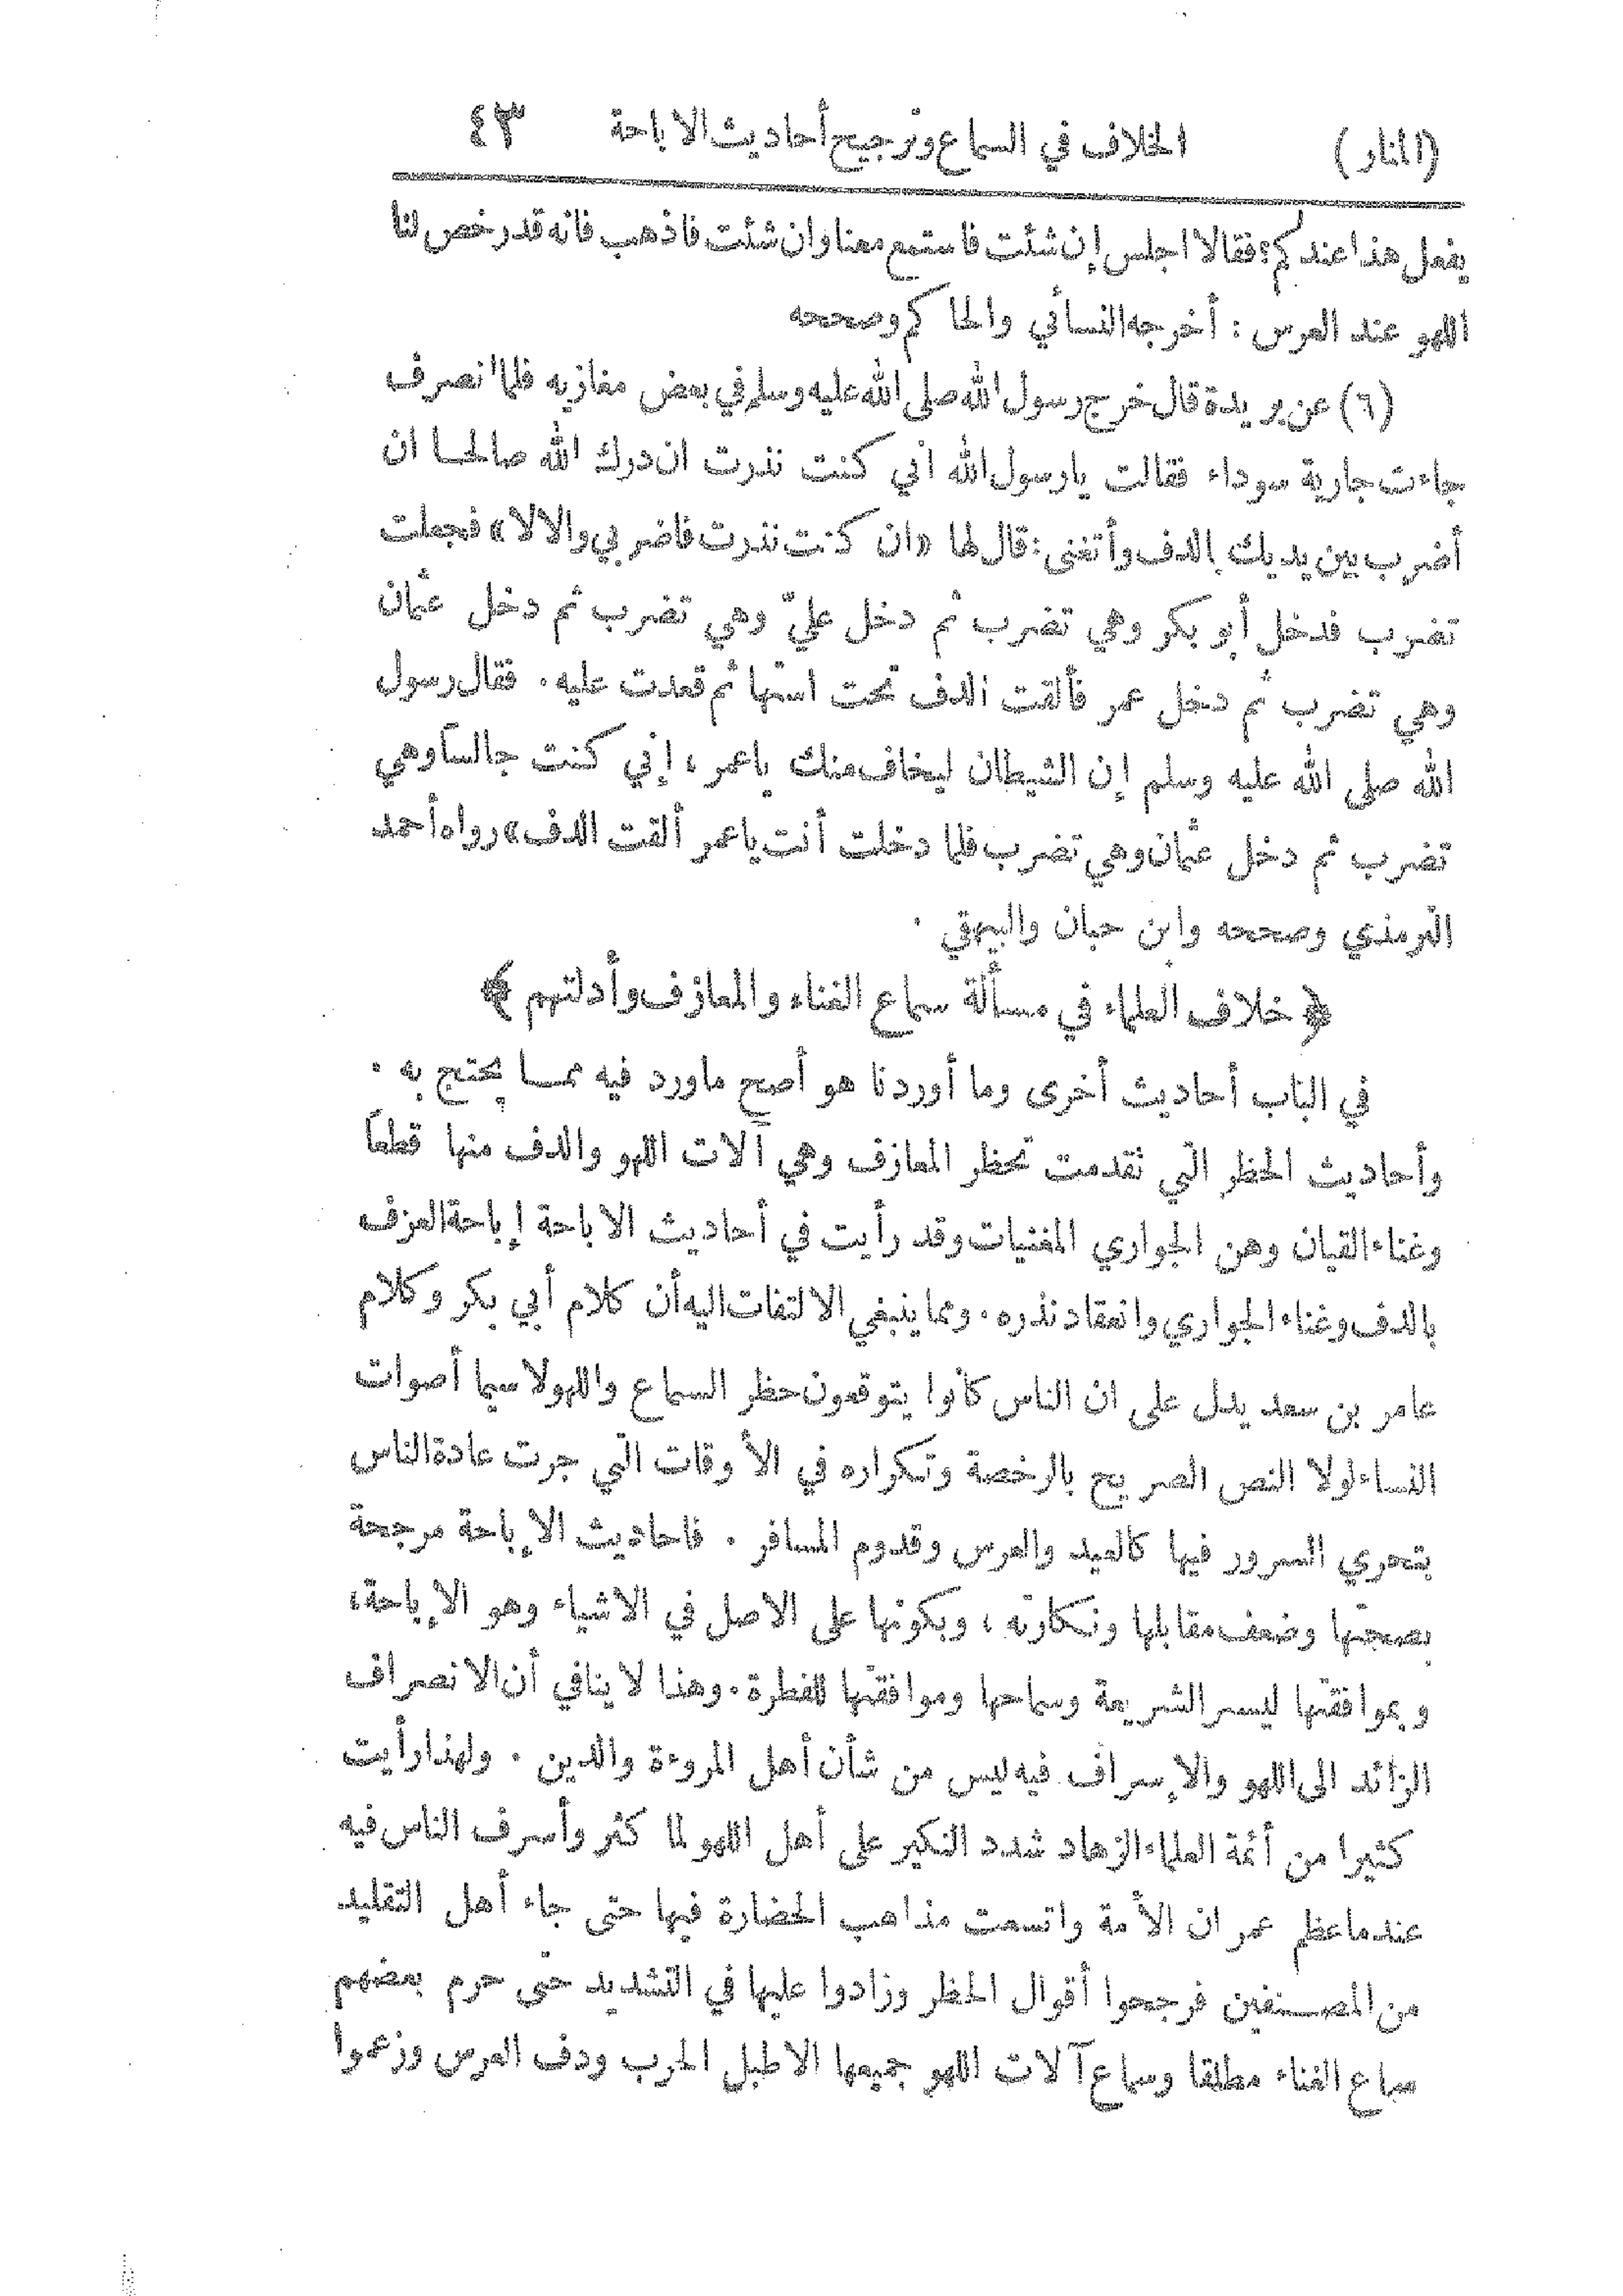 (المنار) الخلاف في السماع وترجيح أحاديث الاباحة ٤٣
يفعل هذا عندكم؟ فقالا اجلس إن شئت فاستمع معنا وان شئت فاذهب فانه قد رخص لنا
اللهو عند العرس : أخرجه النسائي والحاكم وصححه
(٦) عن بريدة قال خرج رسول الله صلى الله عليه وسلم في بعض مغازيه فلما انصرف
جاءت جارية سوداء فقالت يارسول الله اني كنت نذرت ان درك الله صالحا ان
أضرب بين يديك بالدف وأتغنى : قال لها «ان كنت نذرت فاضربي والا لا» فجعلت
تضرب فدخل أبو بكر وهي تضرب ثم دخل عليّ وهي تضرب ثم دخل عثمان
وهي تضرب ثم دخل عمر فألقت الدف تحت استها ثم قعدت عليه . فقال رسول
الله صلى الله عليه وسلم إن الشيطان ليخاف منك ياعمر ، إني كنت جالساً وهي
تضرب ثم دخل عثمان وهي تضرب فلما دخلت أنت ياعمر ألقت الدف» رواه أحمد
الترمذي وصححه وابن حبان والبيهقي .
﴿ خلاف العلماء في مسألة سماع الغناء والمعازف وأدلتهم ﴾
في الباب أحاديث أخرى وما أوردنا هو أصح ماورد فيه ممــا يحتج به .
وأحاديث الحظر التي تقدمت تحظر المعازف وهي آلات اللهو والدف منها قطعاً
وغناء القيان وهن الجواري المغنيات وقد رأيت في أحاديث الاباحة إباحة العزف
بالدف وغناء الجواري وانعقاد نذره . ومما ينبغي الالتفات اليه أن كلام أبي بكر وكلام
عامر بن سعد يدل على ان الناس كانوا يتوقعون حظر السماع واللهو لا سيما أصوات
النساء لولا النص الصريح بالرخصة وتكراره في الأوقات التي جرت عادة الناس
بتحري السرور فيها كالعيد والعرس وقدوم المسافر . فاحاديث الإباحة مرجحة
بصحتها وضعف مقابلها ونكارته ، وبكونها على الاصل في الاشياء وهو الإباحة،
وبموافقتها ليسر الشريعة وسماحها وموافقتها للفطرة . وهذا لا ينافي أن الانصراف
الزائد الى اللهو والإسراف فيه ليس من شأن أهل المروءة والدين . ولهذا رأيت
كثيرا من أئمة العلماء الزهاد شدد النكير على أهل اللهو لما كثر وأسرف الناس فيه
عندما عظم عمران الأمة واتسعت مذاهب الحضارة فيها حتى جاء أهل التقليد
من المصــنفين فرجحوا أقوال الحظر وزادوا عليها في التشديد حتى حرم بعضهم
سماع الغناء مطلقا وسماع آلات اللهو جميعها الا طبل الحرب ودف العرس وزعموا